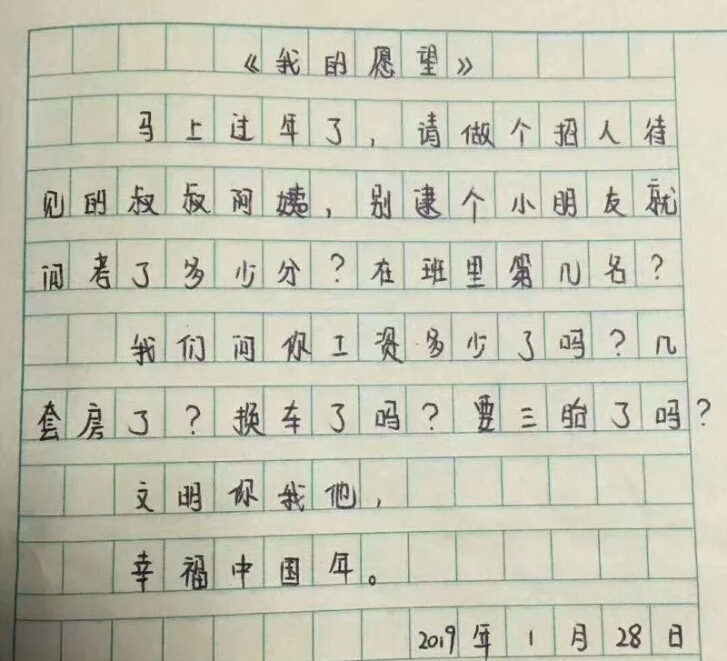 《我的愿望》
马上过年了，请做个招人待
见的叔叔阿姨，别逮个小朋友就
问考了多少分？在班里第几名？
我们问你工资多少了吗？几
套房了？换车了吗？要三胎了吗？
文明你我他，
幸福中国年。
2019年1月28日